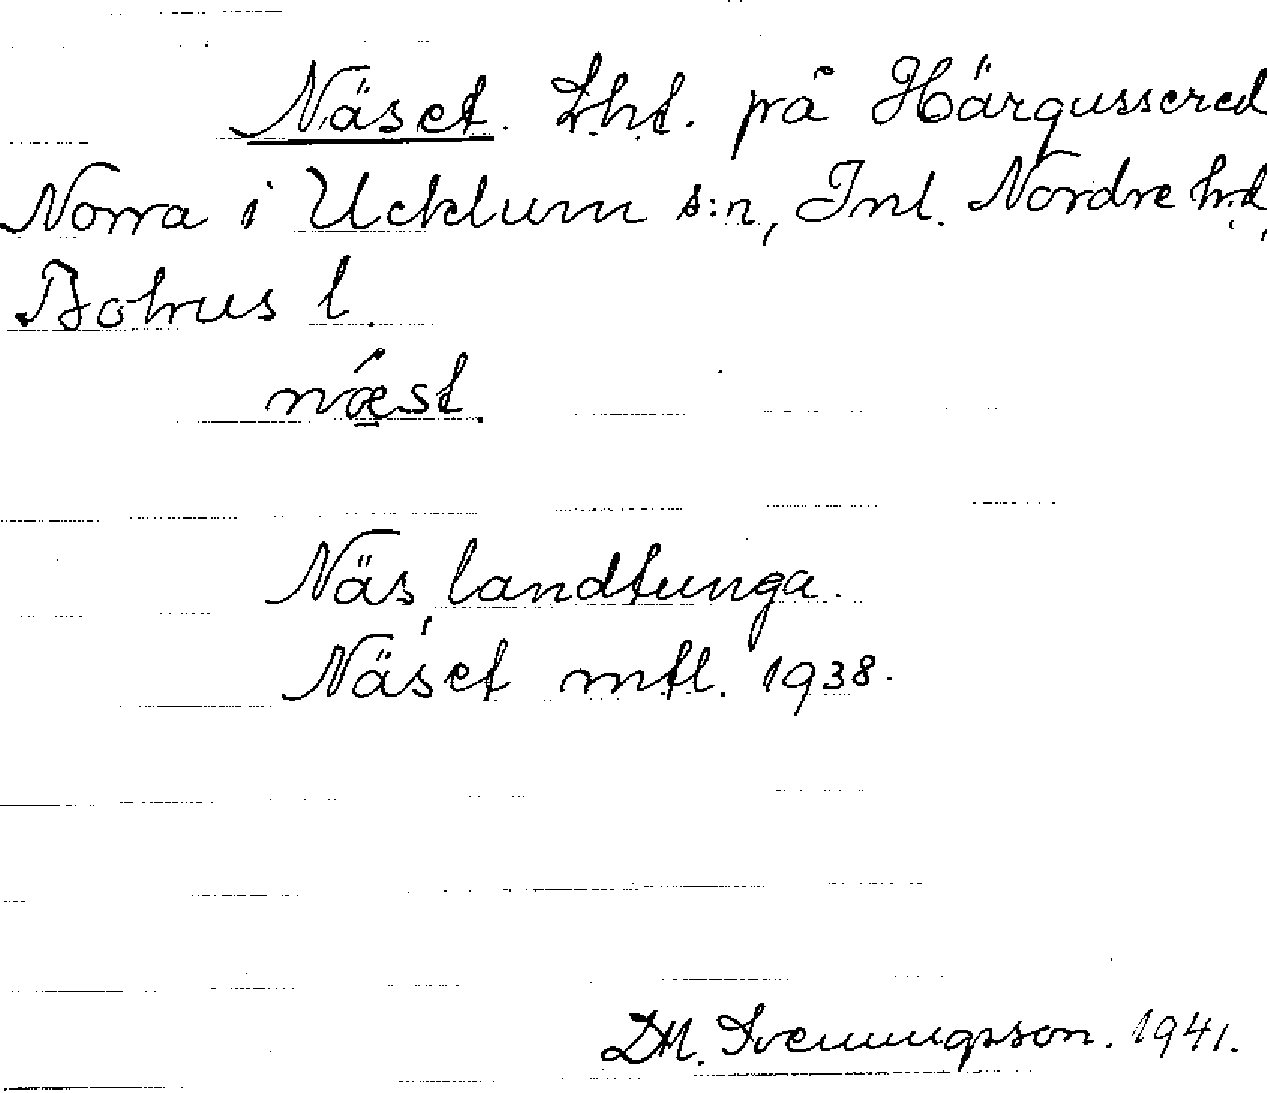 Näset. Lht. på Härgussered
Norra i Ucklum s:n, Inl. Nordre hrd,
Bohus l.
næ̀st.
Näs, landtunga.
Näset mtl. 1938.
DM. Svenungsson. 1941.